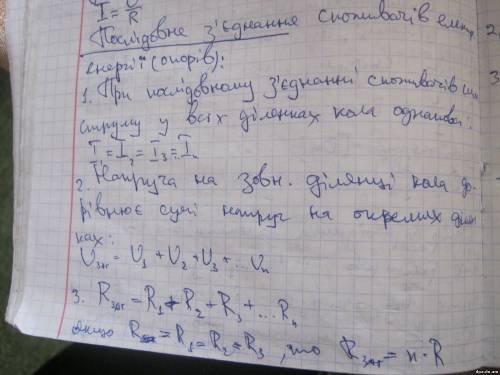 I = U/R
Послідовне з'єднання споживачів елект.
енергії (опорів):
1. При послідовному з'єднанні споживачів
струму у всіх ділянках кола однакова:
I₁ = I₂ = I₃ = Iₙ
2. Напруга на зовн. ділянці кола до-
рівнює сумі напруг на окремих ділян
ках:
Uзаг = U₁ + U₂ + U₃ + ...Uₙ
3. Rзаг = R₁ + R₂ + R₃ + ...Rₙ
якщо = R₁ = R₂ = R₃, то Rзаг = n · R
2.
3